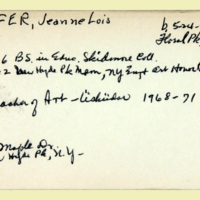 FER, Jeanne Lois
b 5
Floral Pk
6 B.S. in Educ. Skidmore Coll.
2 New Hyde Pk Mem, NY Art
Teacher of Art - Üsküdar 1968-71
Maple Dr.
Hyde Pk, N.Y.